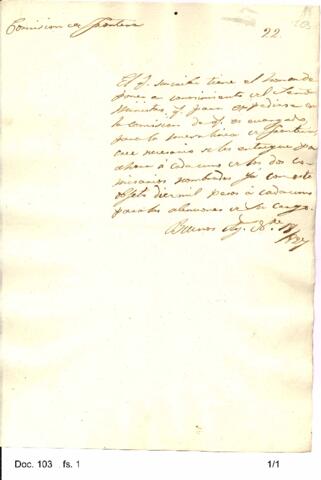 Comision de frontera
22
103
El q.e suscribe tiene el honor de
poner a conocimiento del Señor
Ministro q.e para expedirse en
la comision de q.e es encargado
para la nueva linea de frontera
cree necesario se les entregue por
ahora á cada uno de los dos co-
misarios nombrados p.a con este
objeto diez mil pesos á cada uno
para las atenciones de su cargo
Buenos Ay.s
Doc. 103 fs. 1
1/1